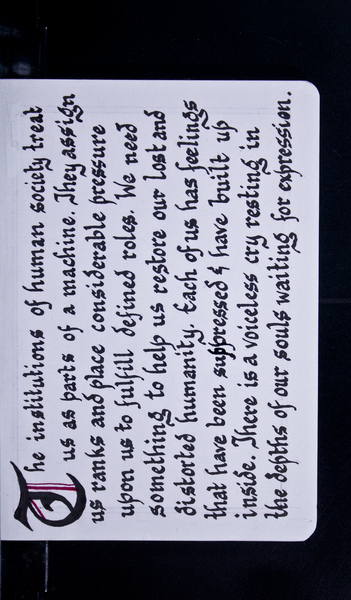 The institutions of human society treat
us as parts of a machine. They assign
us ranks and place considerable pressure
upon us to fulfill defined roles. We need
something to help us restore our lost and
distorted humanity. Each of us has feelings
that have been suppressed & have built up
inside. There is a voiceless cry resting in
the depths of our souls waiting for expression.